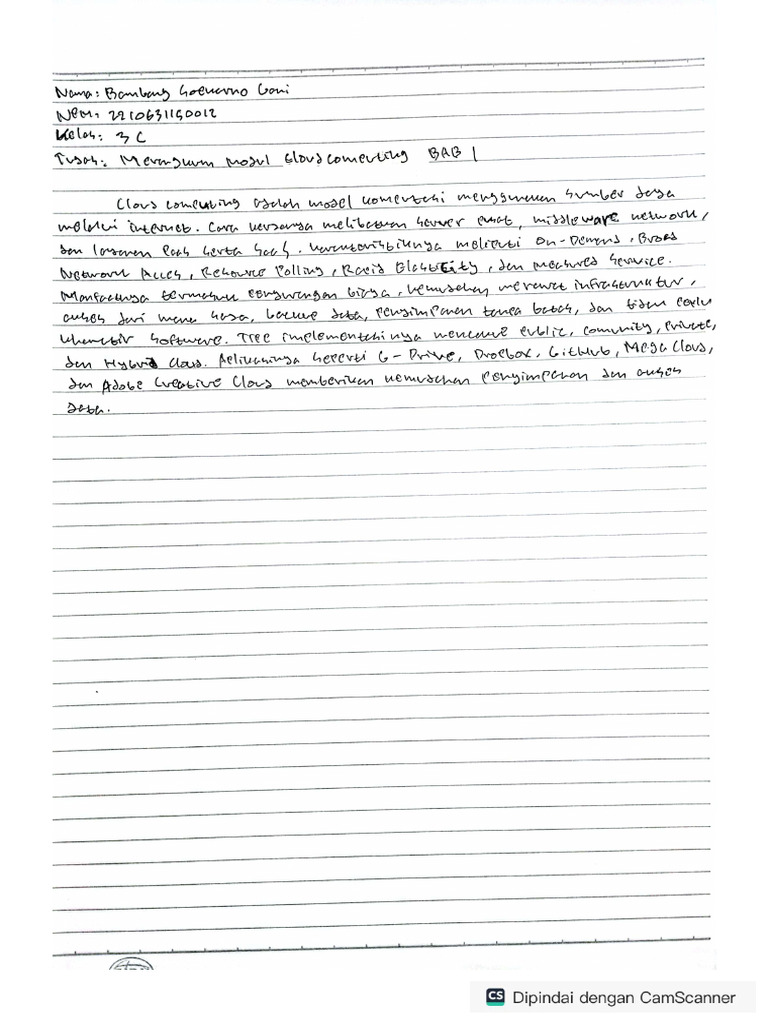 Nama: Bambang Soekarno Goni
NPM: 2210631150012
Kelas: 3 C
Tugas: Merangkum Modul Cloud Computing BAB 1
Cloud computing adalah model komputasi menggunakan sumber daya
melalui internet. Cara kerjanya melibatkan server pusat, middleware network,
dan layanan PaaS serta SaaS. karakteristiknya meliputi On-Demand, Broad
Network Acces, Resource Polling, Rapid Elasticity, dan Measured Service.
Manfaatnya termasuk pengurangan biaya, kemudahan merawat infrastruktur,
akses dari mana saja, backup data, penyimpanan tanpa batas, dan tidak perlu
khawatir software. Tipe implementasinya mencakup public, comunity, private,
dan Hybrid Cloud. Aplikasinya seperti G-Drive, Dropbox, GitHub, Mega Cloud,
dan Adobe Creative Cloud memberikan kemudahan penyimpanan dan akses
data.
CS Dipindai dengan CamScanner